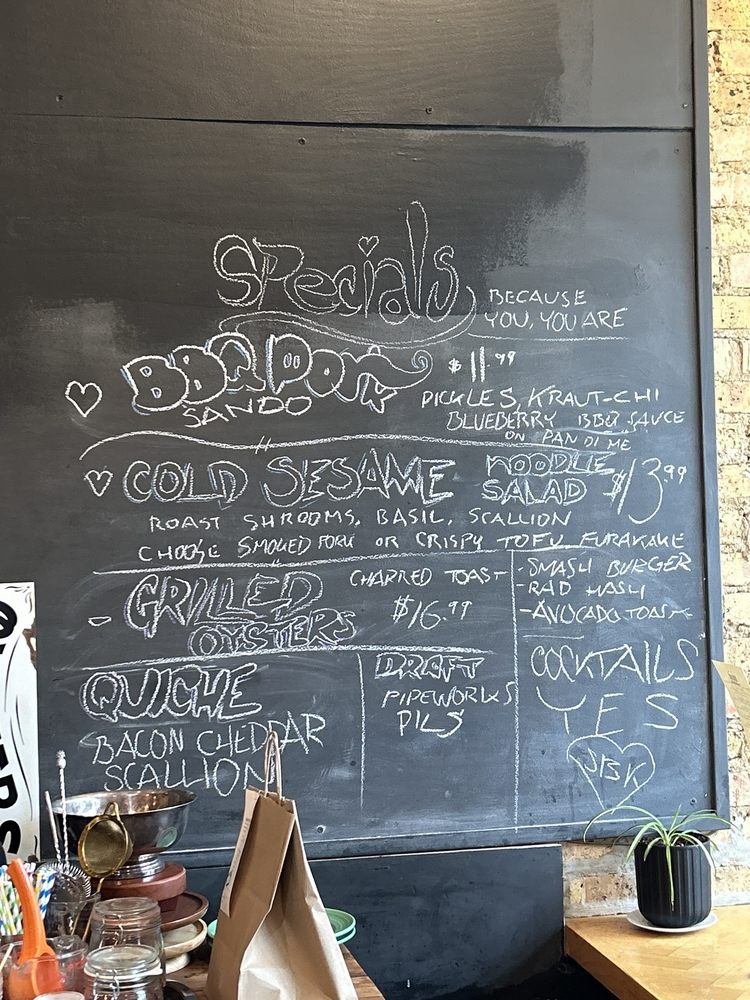 Specials
BECAUSE
YOU, YOU ARE
BBQ Pork
SANDO
$11.99
PICKLES, KRAUT-CHI
BLUEBERRY BBQ SAUCE
ON PAN DI ME
COLD SESAME NOODLE
SALAD $13.99
ROAST SHROOMS, BASIL, SCALLION
CHOOSE SMOKED PORK OR CRISPY TOFU FURAKAKE
GRILLED
OYSTERS
CHARRED TOAST
$16.99
- SMASH BURGER
- RAD HASH
- AVOCADO TOAST
QUICHE
BACON CHEDDAR
SCALLION
DRAFT
PIPEWORKS
PILS
COCKTAILS
YES